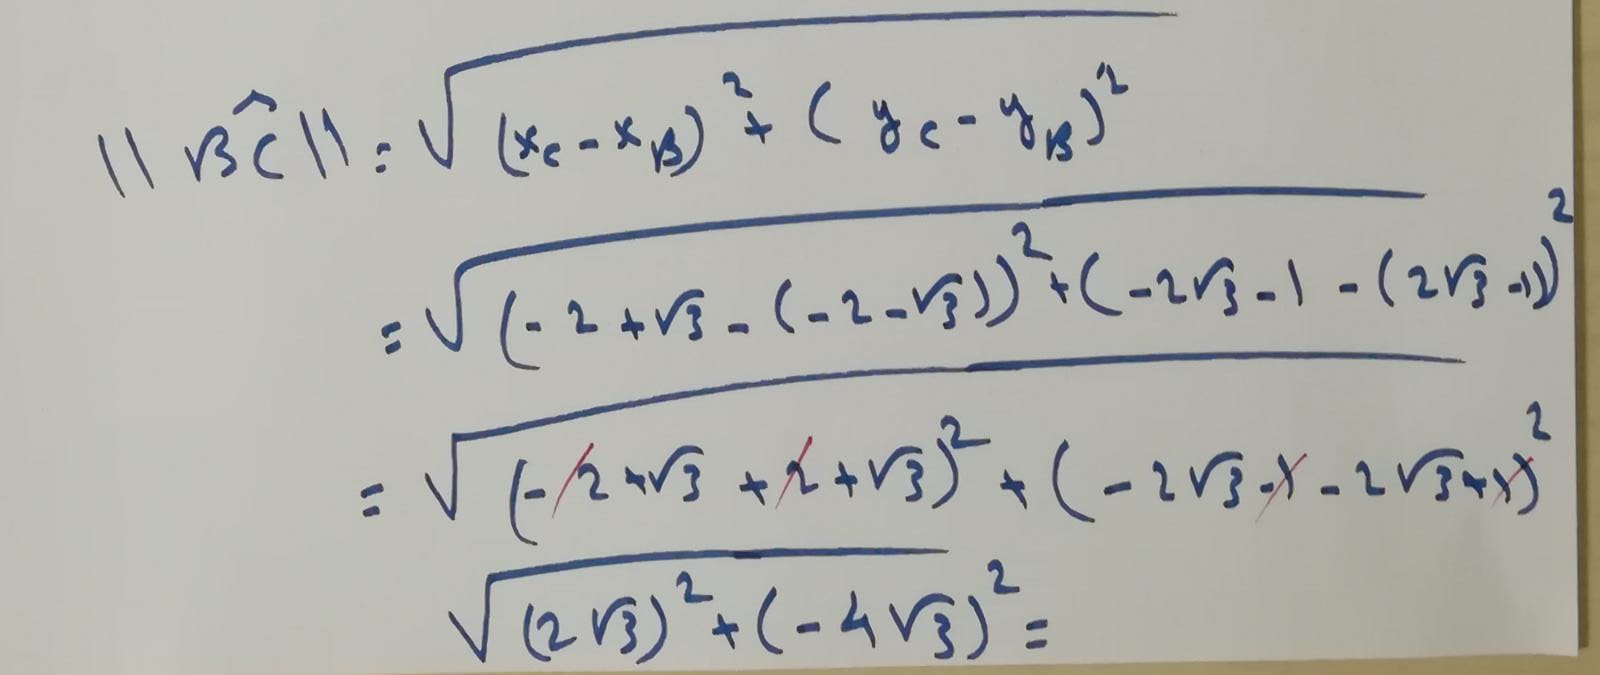 ||BC|| = √((x_C - x_B)² + (y_C - y_B)²)
= √((-2+√3-(-2-√3))² + (-2√3-1-(2√3-1))²
= √((-2+√3+2+√3)² + (-2√3-1-2√3+1)²
√((2√3)² + (-4√3)²) =